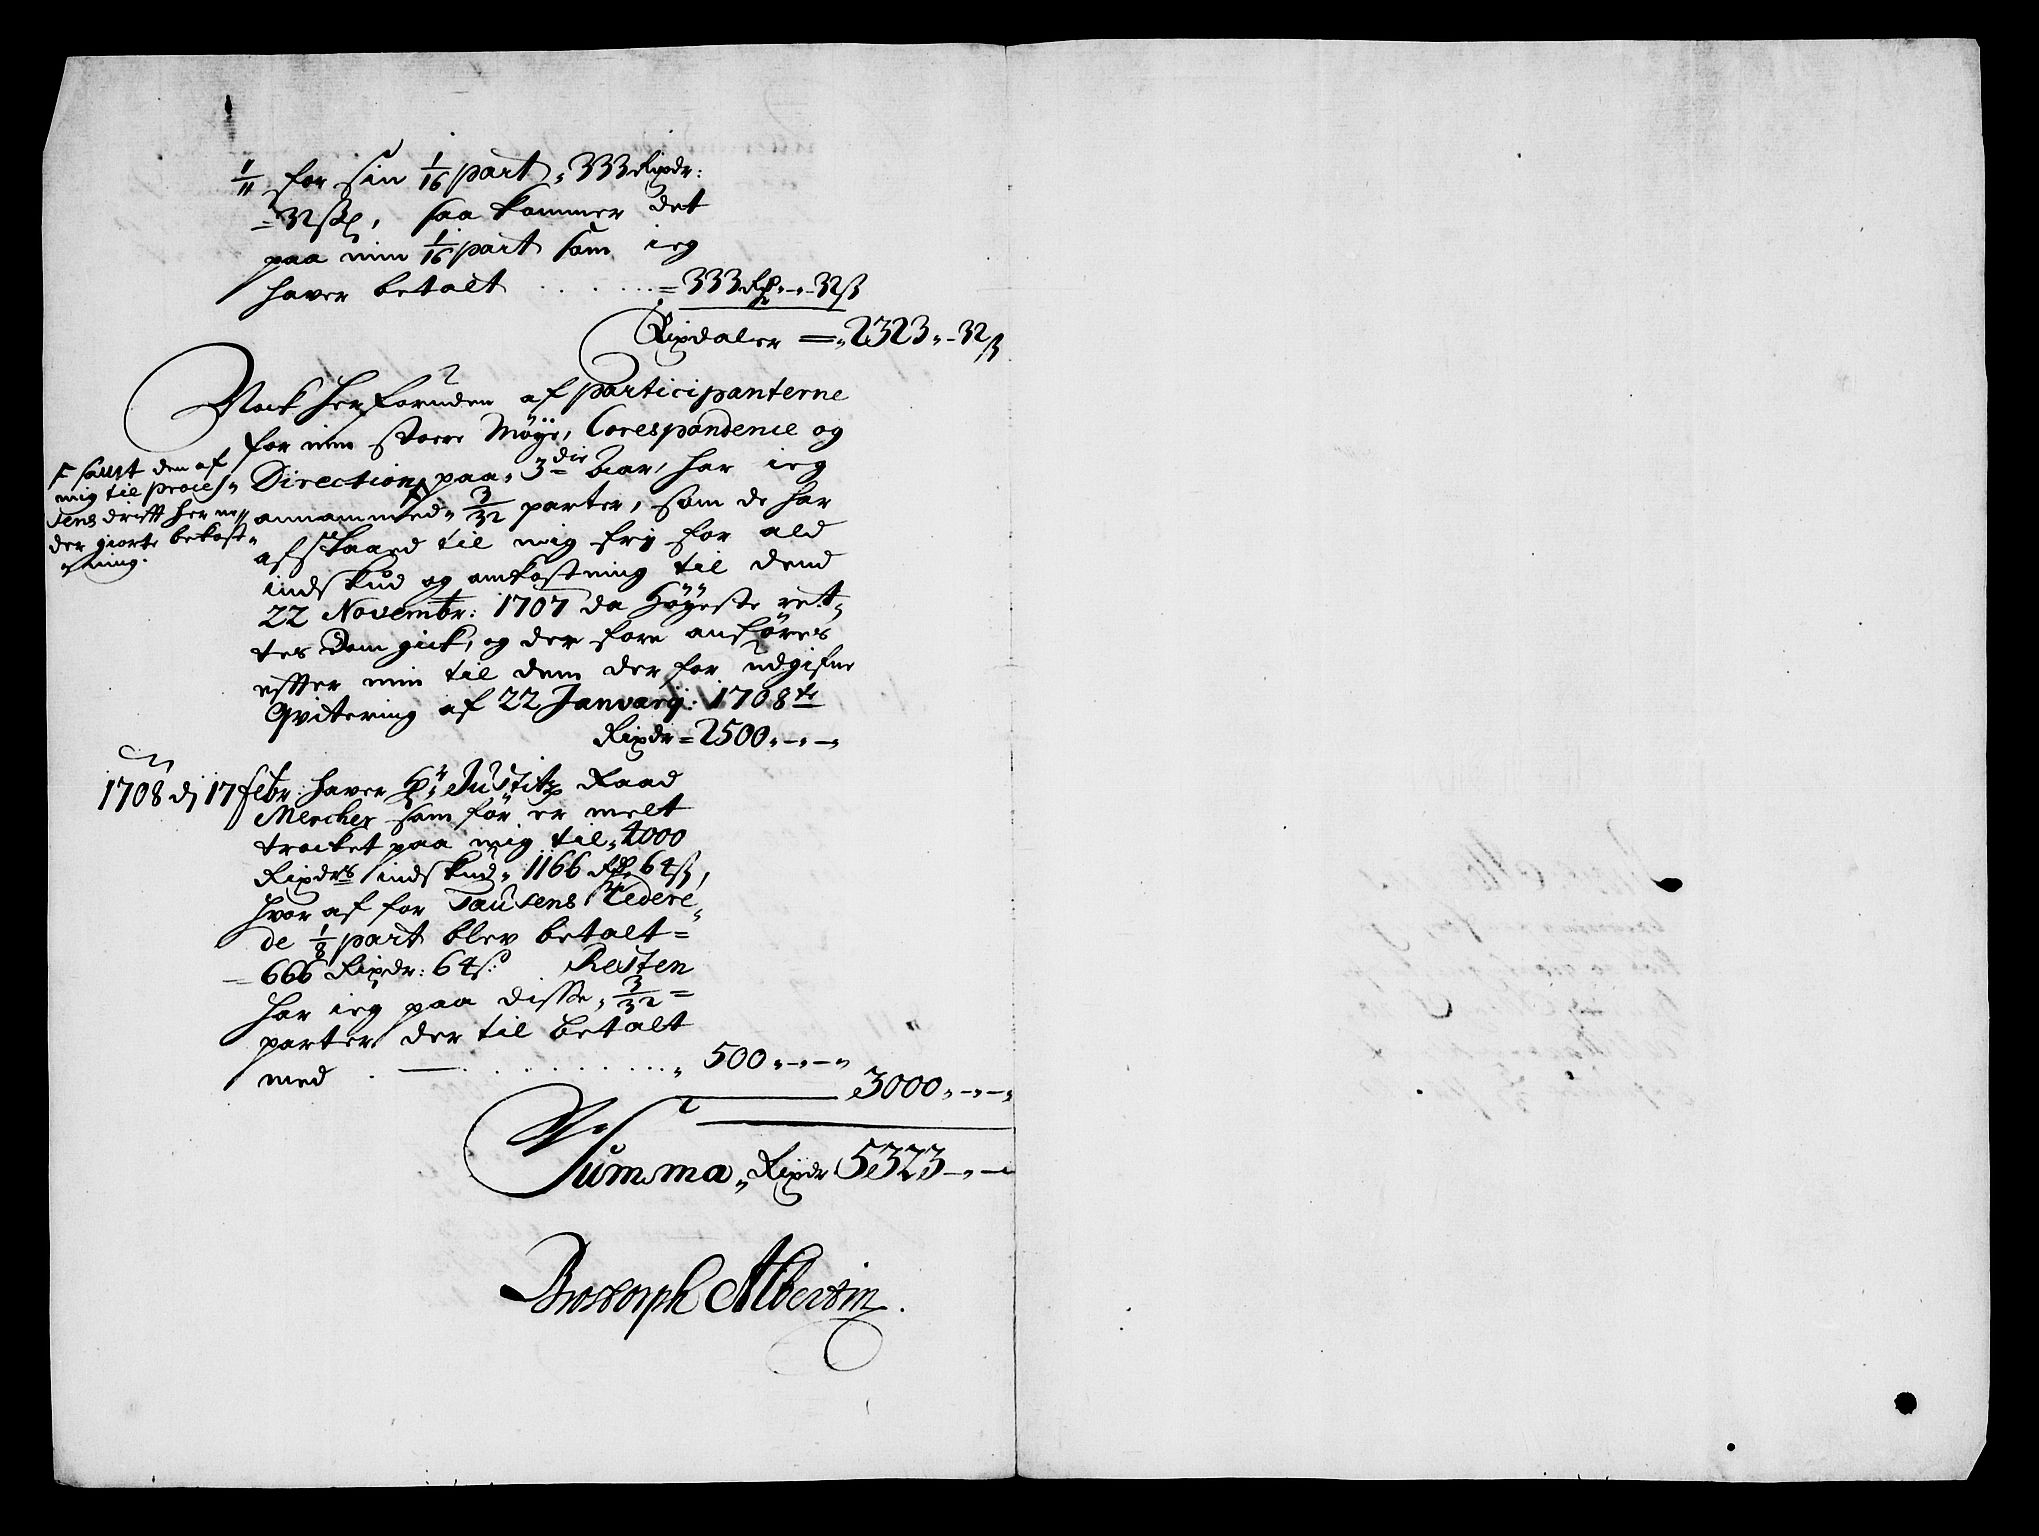 1/11 for sin 1/16 part „ 333 Rixdr:
= 32 sk, saa kommer det
paa min 1/16 part som ieg
haver betalt . . . . . . = 333 Rd „-„ 32 ß
Rixdaler = „ 2323 „ - 32 ß
Nock herforuden af participanterne
for min stoere Møye, Corespondence og
Direction paa „ 3die Aar, har ieg
annammed „ 3/32 parter, som de har
afstaaed til mig fri for ald
indskud og omkostning til dend
22 Novembr: 1707 da Høyeste ret-
tes Dom gick, og der fore anføres
effter min til dem der for udgifne
Qvitering af 22 Januarij: 1708te
Rixdr = 2500 „-„-
F sampt den af
mig til proces-
sens drifft her un-
der giorte bekost-
ning.
1708 dj 17 febr: haver Hr Justitz Raad
Mercker som før er melt
trocket paa mig til „ 4000
Rixdrs indskud „ 1166 Rd 64 ß,
hvor af for Tausens Rederi-
de 1/8 part blev betalt =
= 666 Rixdr: 64 ß: Resten
har ieg paa disse „ 3/32 =
parter der til betalt
med . . . . . . . . . . . „ 500 „-„-„
3000 „-„-„
Summa „ Rixdr 5323 -„-
Albertin.